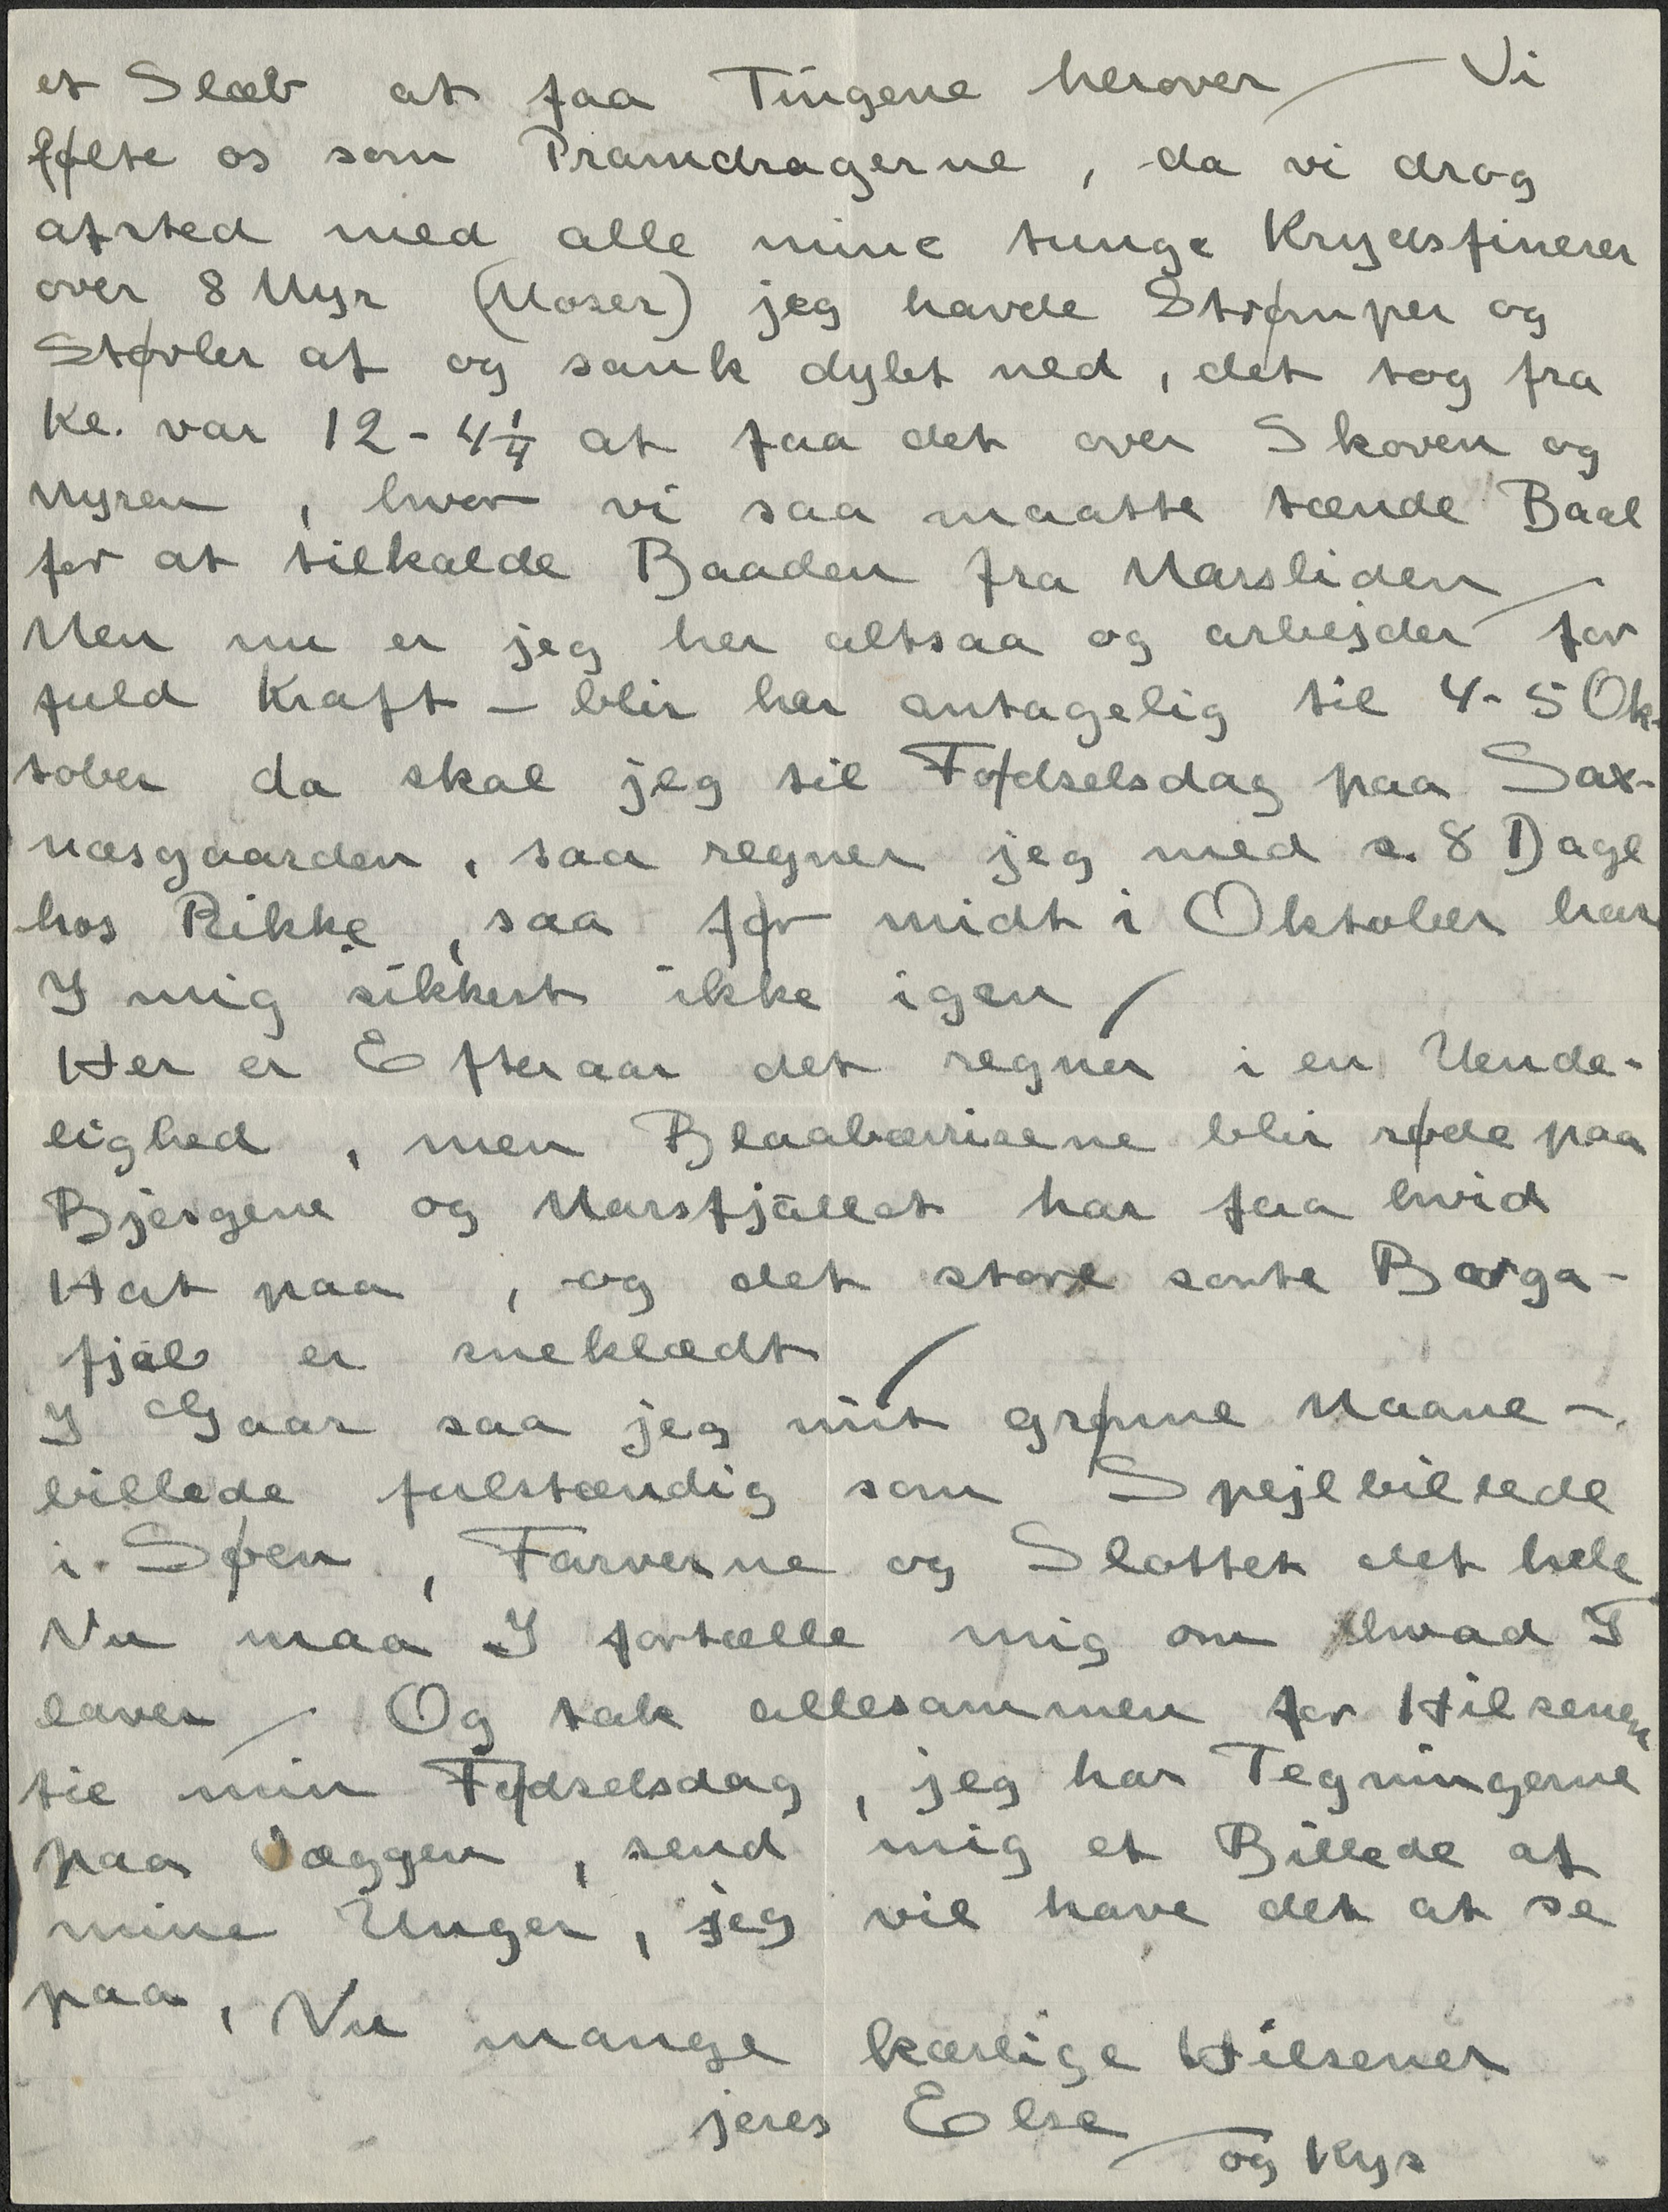 et Slæb at faa Tingene herover — Vi
følte os som Pramdragerne, da vi drog
afsted med alle mine tunge Krydsfinerer
over 8 Myr (Moser) jeg havde Strømper og
Støvler af og sank dybt ned, det tog fra
Kl. var 12 - 4 1/4 at faa det over Skoven og
Myren, hvor vi saa maatte tænde Baal
for at tilkalde Baaden fra Marsliden —
Men nu er jeg her altsaa og arbejder for
fuld Kraft — blir her antagelig til 4-5 Ok-
tober da skal jeg til Fødselsdag paa Sax-
næsgaarden, saa regner jeg med c. 8 Dage
hos Rikke, saa før midt i Oktober har
I mig sikkert ikke igen /
Her er Efteraar det regner i en Uende-
lighed, men Blaabærrisene blir røde paa
Bjergene og Marsfjället har faa hvid
Hat paa, og det store sorte Borga-
fjäl er sneklædt /
I Gaar saa jeg mit grønne Maane-
billede fulstændig som Spejlbillede
i Søen, Farverne og Slottet det hele
Nu maa I fortælle mig om hvad I
laver — Og tak allesammen for Hilsenen
til min Fødselsdag, jeg har Tegningerne
paa Væggen, send mig et Billede af
mine Unger, jeg vil have det at se
paa, Nu mange kærlige Hilsener
jeres Else —
og Kys